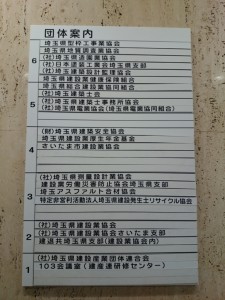 団体案内
6
埼玉県型枠工事業協会
埼玉県地質調査業協会
(社)埼玉県造園業協会
(社)日本塗装工業会埼玉県支部
(社)埼玉建築設計監理協会
5
埼玉県建設業健康保険組合
埼玉県総合建設業協同組合
(社)埼玉建築士会
(社)埼玉県建築士事務所協会
(社)埼玉県電業協会(埼玉県電業協同組合)
4
(財)埼玉県建築安全協会
埼玉県建設業厚生年金基金
さいたま市建設業協会
3
(社)埼玉県測量設計業協会
建設業労働災害防止協会埼玉県支部
埼玉アスファルト合材協会
特定非営利活動法人埼玉県建設発生土リサイクル協会
2
(社)埼玉県建設業協会
(社)埼玉県建設業協会さいたま支部
建退共埼玉県支部(建設業協会内)
1
(社)埼玉県建設産業団体連合会
103会議室(建産連研修センター)